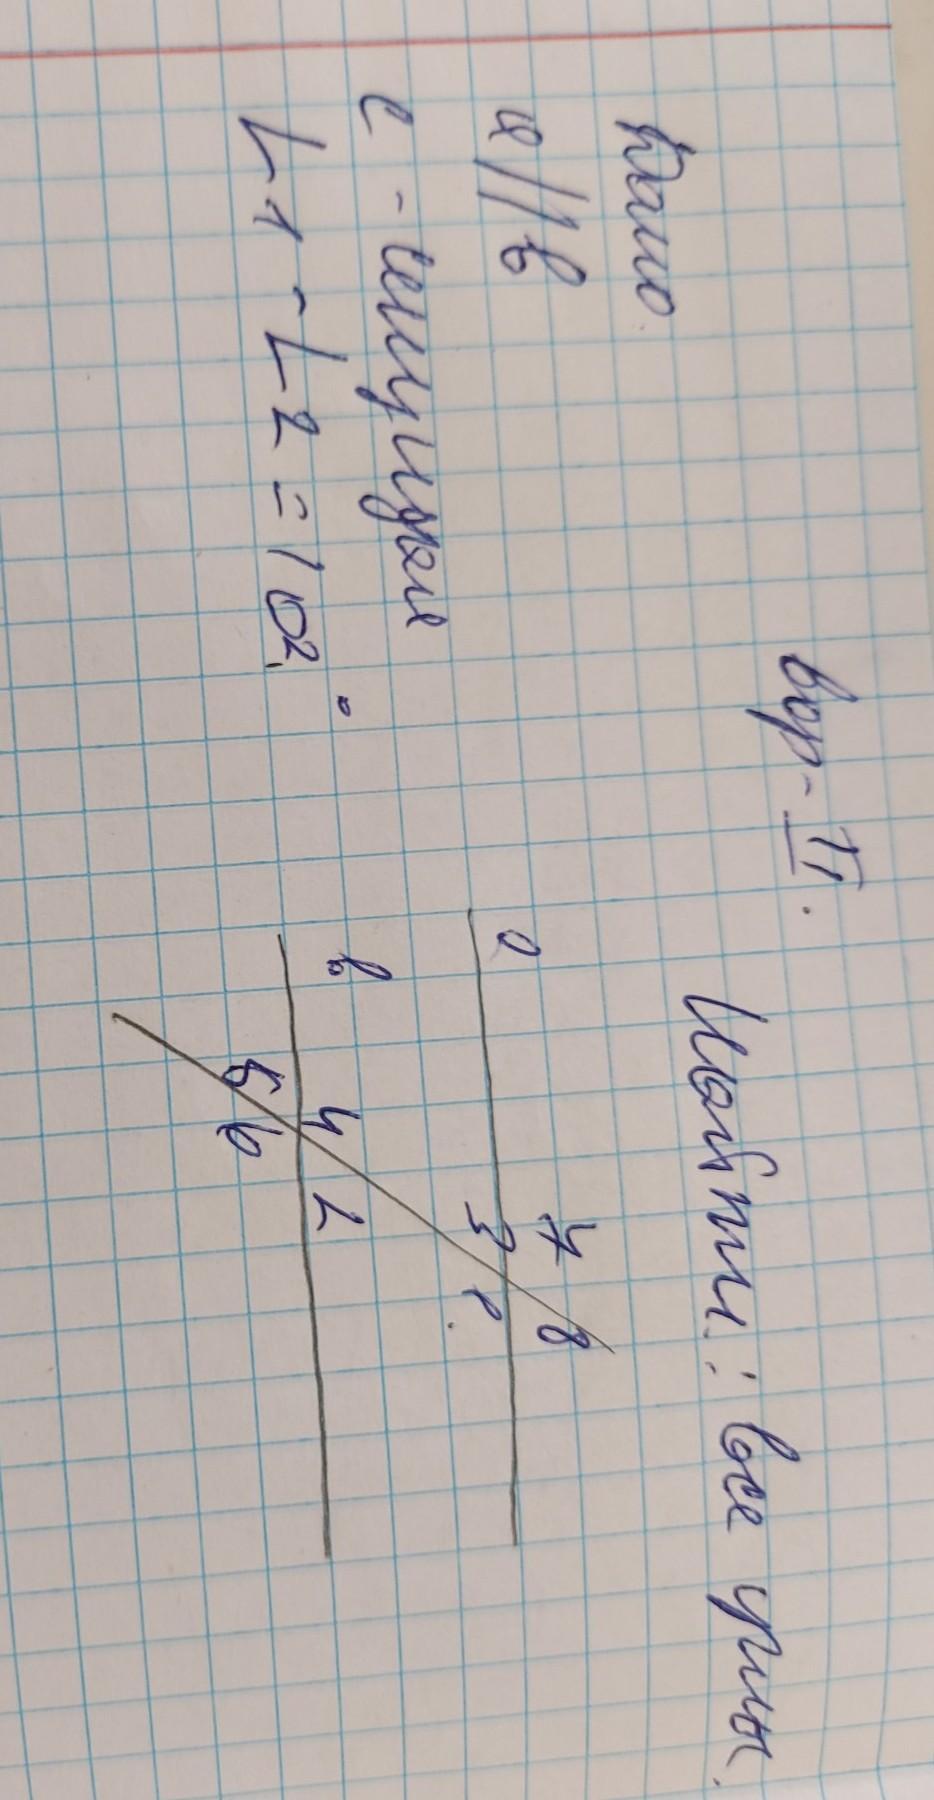 вар-II.
Дано.
Найти: все углы.
a//b
c - секущая
∠1 - ∠2 = 102°
a
7 8
3 1
b
4 2
5 6